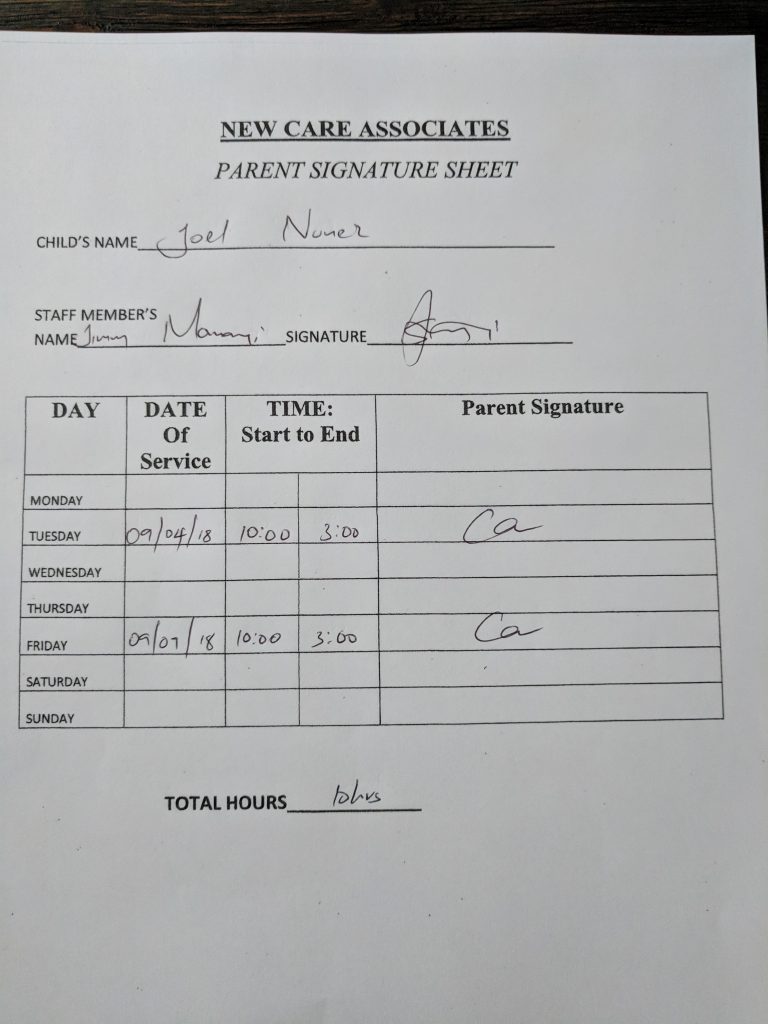 NEW CARE ASSOCIATES
PARENT SIGNATURE SHEET
CHILD'S NAME Joel Nunez
STAFF MEMBER'S
NAME Jimmy SIGNATURE
DAY DATE Of Service TIME: Start to End Parent Signature
MONDAY
TUESDAY 09/04/18 10:00 3:00 Ca
WEDNESDAY
THURSDAY
FRIDAY 09/07/18 10:00 3:00 Ca
SATURDAY
SUNDAY
TOTAL HOURS 10hrs